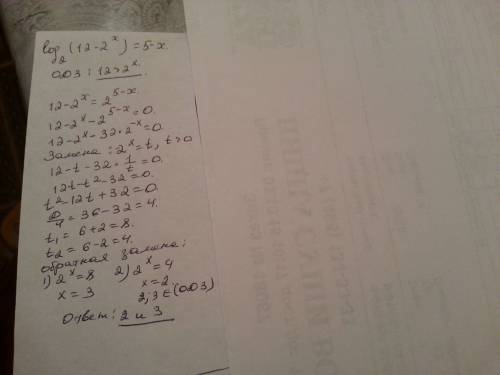 log₂(12-2ˣ)=5-x.
ОДЗ: 12>2ˣ.
12-2ˣ=2⁵⁻ˣ.
12-2ˣ-2⁵⁻ˣ=0.
12-2ˣ-32·2⁻ˣ=0.
Замена: 2ˣ=t, t>0
12-t-32·1/t=0.
12t-t²-32=0.
t²-12t+32=0.
D/4=36-32=4.
t₁=6+2=8.
t₂=6-2=4.
Обратная замена:
1) 2ˣ=8 2) 2ˣ=4
x=3 x=2.
2;3∈(ОДЗ)
Ответ: 2 и 3